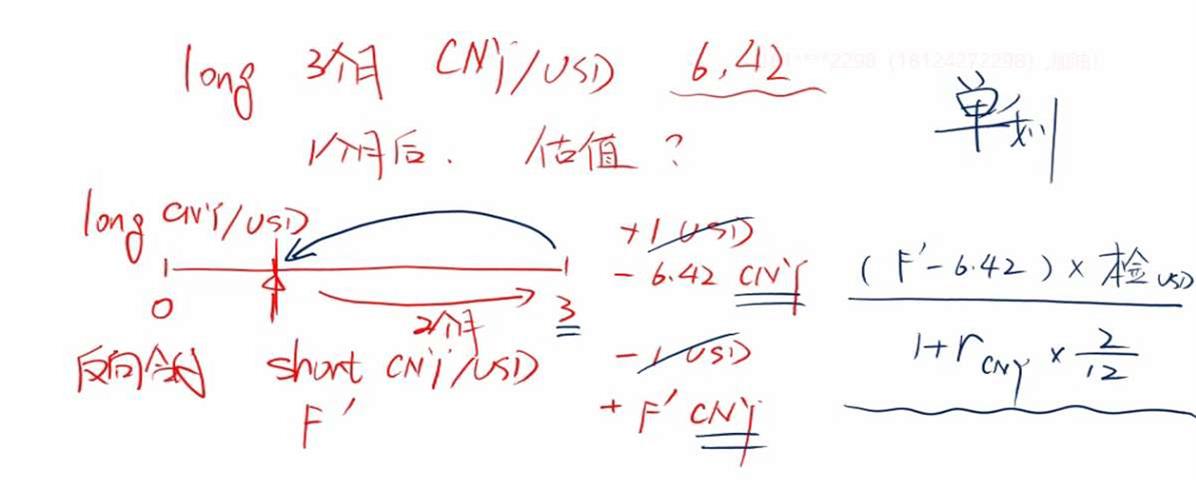 long 3个月 CNY/USD 6.42
1个月后. 估值?
单利
long CNY/USD
0
2个月
3
反向合约 short CNY/USD
F'
+1 USD
- 6.42 CNY
-1 USD
+ F' CNY
(F'-6.42) × 本金 USD
1+r CNY × 2/12